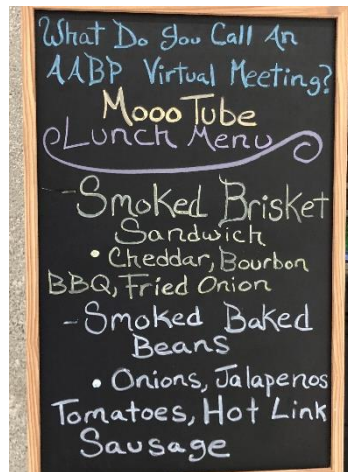 What Do you Call An
AABP Virtual Meeting?
Mooo Tube
Lunch Menu
- Smoked Brisket
Sandwich
• Cheddar, Bourbon
BBQ, Fried Onion
- Smoked Baked
Beans
• Onions, Jalapenos
Tomatoes, Hot Link
Sausage